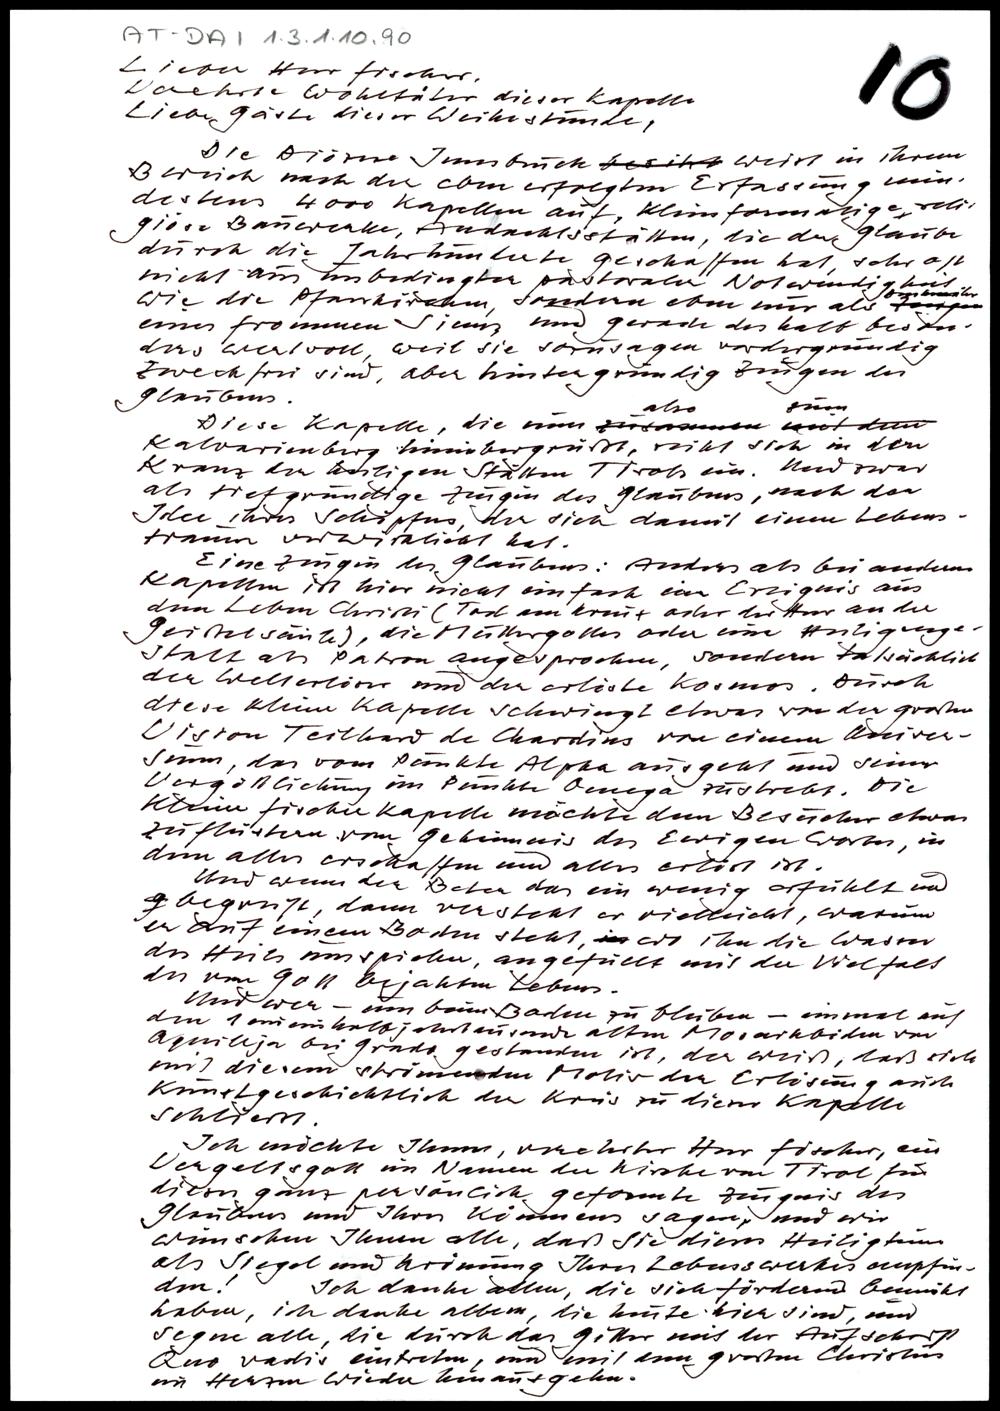 AT-DAI 1.3.1.10.90
10
Lieber Herr Fischer,
Verehrte Wohltäter dieser Kapelle
Liebe Gäste dieser Weihestunde,
Die Diözese Innsbruck besitzt weist in ihrem
Bereich nach der eben erfolgten Erfassung min-
destens 4000 Kapellen auf, kleinformatige, reli-
giöse Bauwerke, Andachtsstätten, die der Glaube
durch die Jahrhunderte geschaffen hat, sehr oft
nicht aus unbedingter pastoraler Notwendigkeit
wie die Pfarrkirchen, sondern eben nur als
eines frommen Sinns, und gerade deshalb beson-
ders wertvoll, weil sie sozusagen vordergründig
zweckfrei sind, aber hintergründig Zeugen des
Glaubens.
also zum
Diese Kapelle, die nun zusammen mit dem
Kalvarienberg hinübergrüßt, reiht sich in den
Kranz der heiligen Stätten Tirols ein. Und zwar
als tiefgründige Zeugin des Glaubens, nach der
Idee ihres Schöpfers, der sich damit einen Lebens-
traum verwirklicht hat.
Eine Zeugin des Glaubens: Anders als bei anderen
Kapellen ist hier nicht einfach ein Ereignis aus
dem Leben Christi (Tod am Kreuz oder der Herr an der
Geißelsäule), die Muttergottes oder eine Heiligenge-
stalt als Patron angesprochen, sondern tatsächlich
der Welterlöser und der erlöste Kosmos. Durch
diese kleine Kapelle schwingt etwas von der großen
Vision Teilhard de Chardins von einem Univer-
sum, das vom Punkte Alpha ausgeht und seiner
Vergöttlichung im Punkte Omega zustrebt. Die
kleine Fischer Kapelle möchte dem Besucher etwas
zuflüstern vom Geheimnis des Ewigen Wortes, in
dem alles erschaffen und alles erlöst ist.
Und wenn der Beter das ein wenig erfühlt und
begreift, dann versteht er vielleicht, warum
er auf einem Boden steht, in wo ihn die Wasser
des Heils umspielen, angefüllt mit der Vielfalt
des von Gott bejahten Lebens.
Und wer – um beim Boden zu bleiben – einmal auf
den 1 einhalbjahrtausende alten Mosaikböden von
Aquileja bei Grado gestanden ist, der weiß, daß sich
mit diesem strömenden Motiv der Erlösung auch
kunstgeschichtlich der Kreis zu dieser Kapelle
schließt.
Ich möchte Ihnen, verehrter Herr Fischer, ein
Vergeltsgott im Namen der Kirche von Tirol für
dieses ganz persönlich geformte Zeugnis des
Glaubens und Ihres Könnens sagen, und wir
wünschen Ihnen alle, daß Sie dieses Heiligtum
als Siegel und Krönung Ihres Lebenswerkes empfin-
den! Ich danke allen, die sich fördernd bemüht
haben, ich danke allen, die heute hier sind, und
segne alle, die durch das Gitter mit der Aufschrift
Quo vadis eintreten, und mit dem großen Christus
im Herzen wieder hinausgehn.